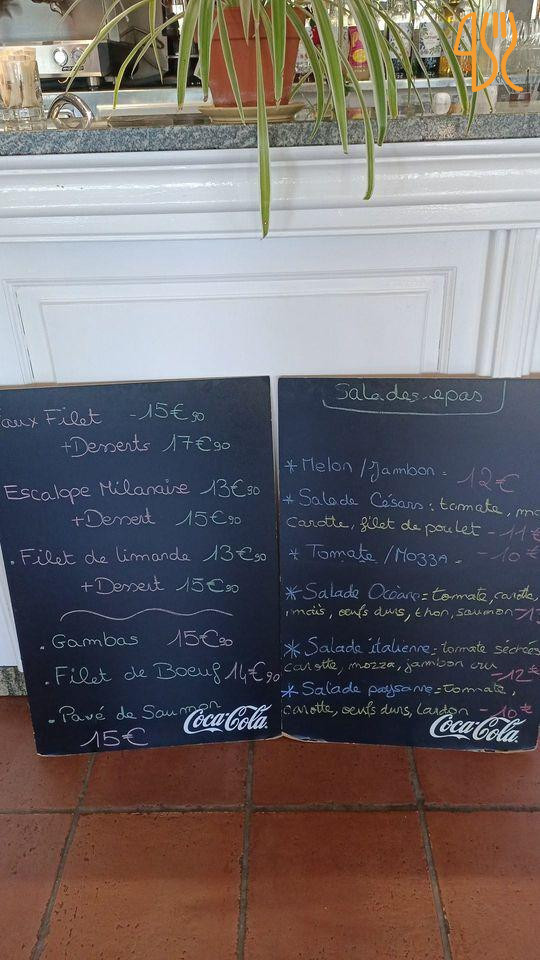 aux Filet - 15€90
+Desserts 17€90
Escalope Milanaise 13€90
+Dessert 15€90
. Filet de limande 13€90
+Dessert 15€90
. Gambas 15€90
. Filet de Boeuf 14€90
. Pavé de Saumon
15€
Coca-Cola
Salades-epas
* Melon / Jambon = 12€
* Salade Césars : tomate, ma
carotte, filet de poulet - 11€
* Tomate / Mozza = - 10€
* Salade Océane = tomate, carotte,
maïs, oeufs durs, thon, saumon - 13
* Salade italienne = tomate séchées
carotte, mozza, jambon cru
- 12€
* Salade paysanne = Tomate,
carotte, oeufs durs, lardon - 10€
Coca-Cola